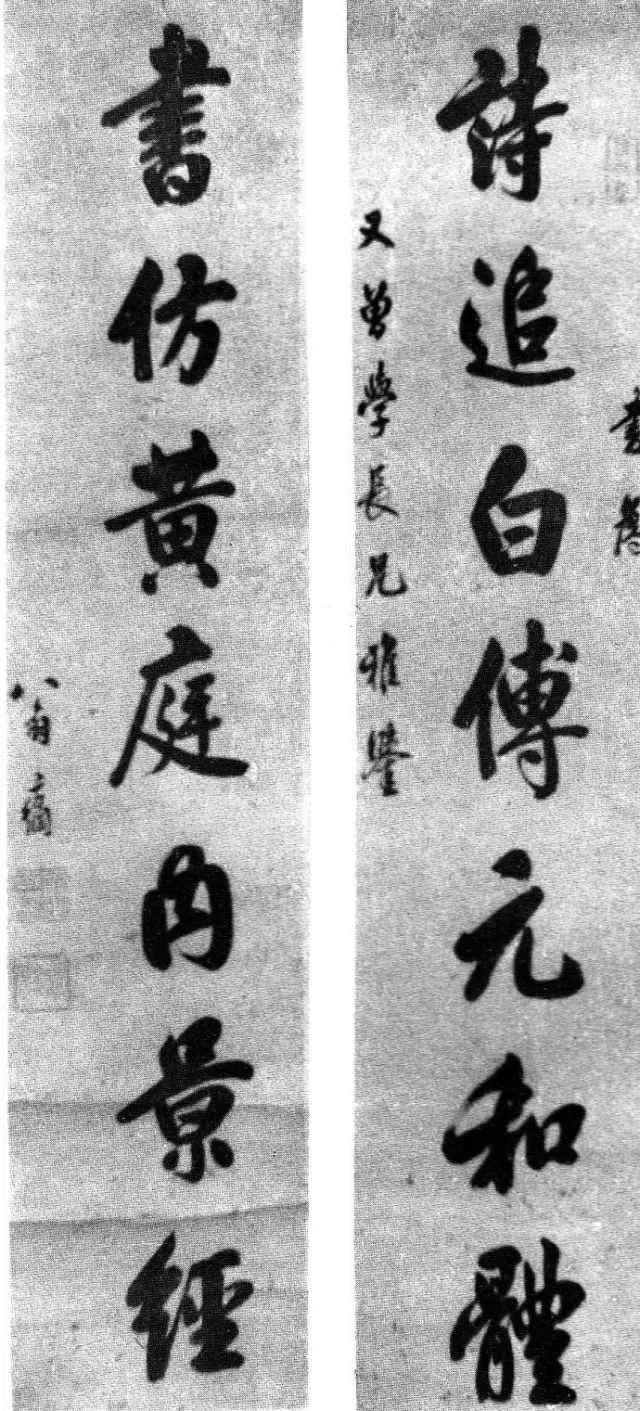 詩追白傅元和體
又曾學長兄雅鑒
書仿黃庭內景經